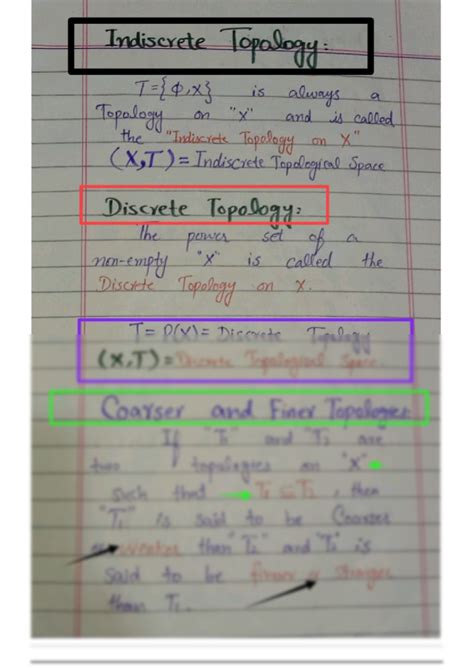 Indiscrete Topology:
T={φ,X} is always a
Topology on "X" and is called
the "Indiscrete Topology on X"
(X,T) = Indiscrete Topological Space
Discrete Topology:
The power set of a
non-empty "X" is called the
Discrete Topology on X.
T= P(X)= Discrete Topology
(X,T) = Discrete Topological Space
Coarser and Finer Topologies:
If "T₁" and "T₂ are
two topologies on "X"
such that T₁ ⊆ T₂, then
"T₁" is said to be Coarser
or weaker than "T₂" and "T₂" is
said to be finer or stronger
than T₁.